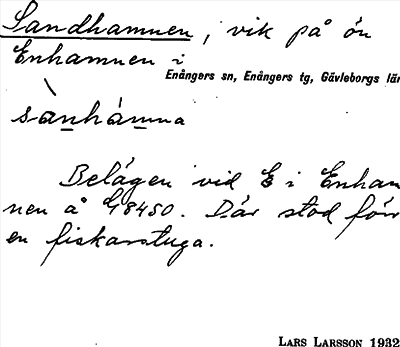 Sandhamnen, vik på ön
Enhamnen i
Enångers sn, Enångers tg, Gävleborgs län
sànhámna
Belägen vid E i Enham
nen å G8450. Där stod förr
en fiskarstuga.
LARS LARSSON 1932